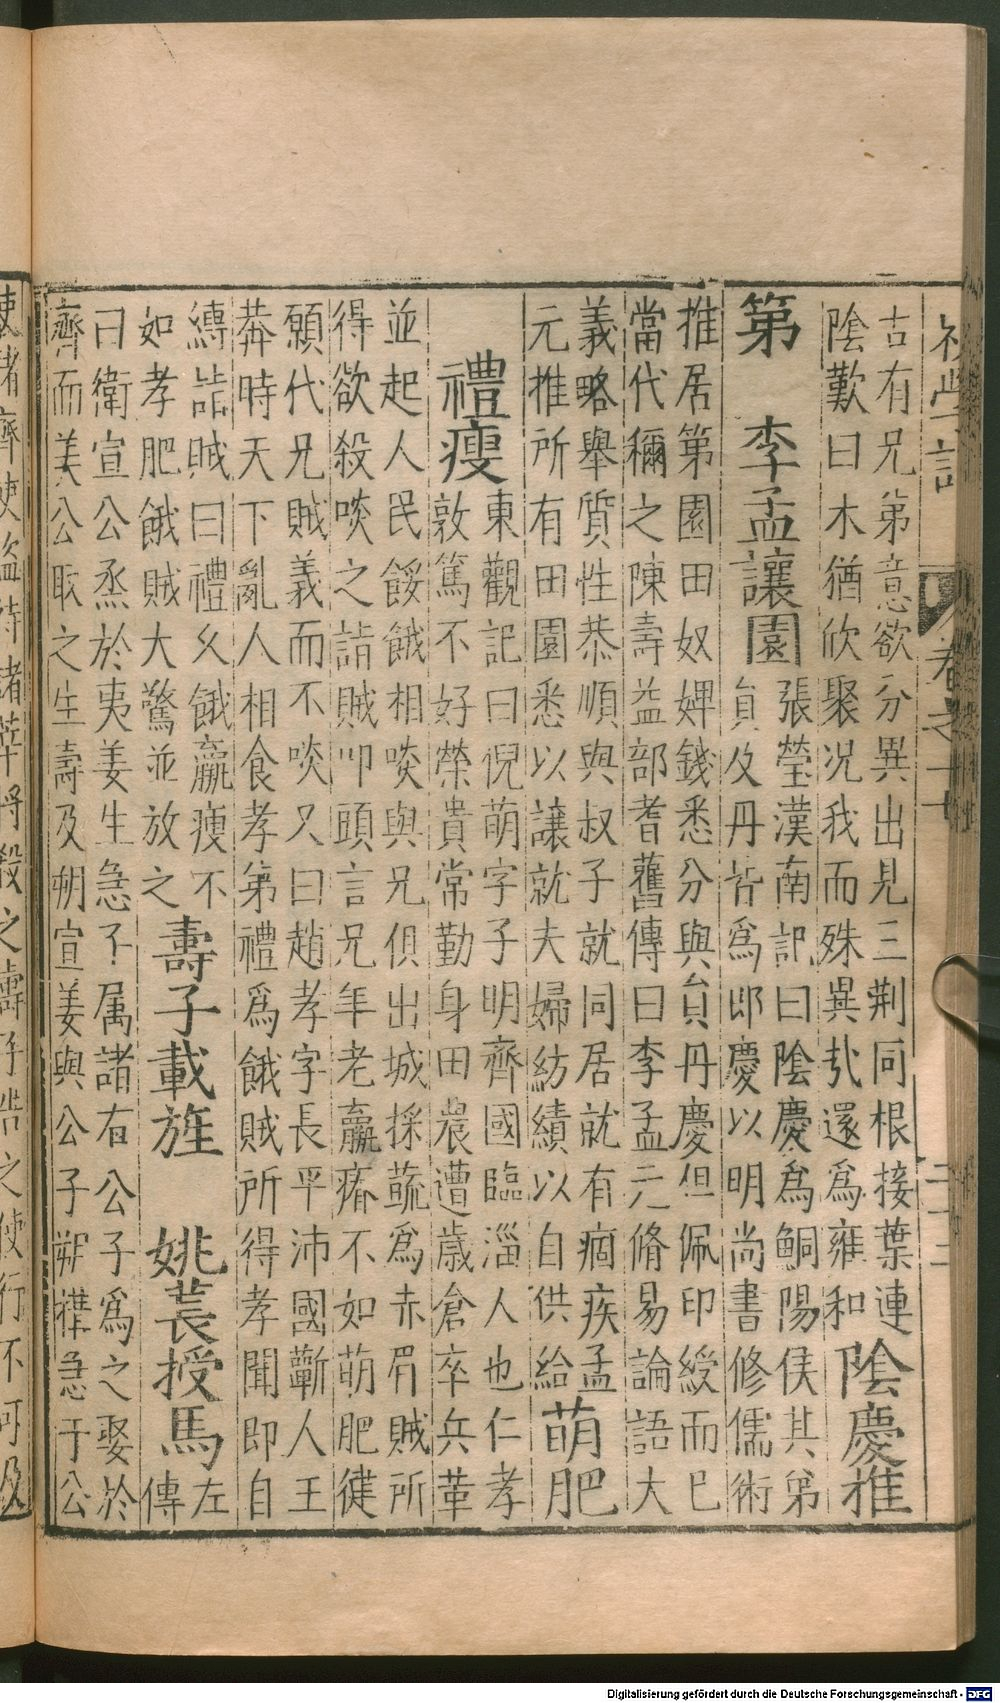 初學記
卷之十七
二十三
古有兄弟意欲分異出見三荆同根接葉連
陰歎曰木猶欣聚况我而殊異㢤遂爲雍和 陰慶推
第 李孟讓園
張瑩漢南記曰陰慶爲鮦陽侯其弟
貟及丹皆爲郎慶以明尚書修儒術
推居第園田奴婢錢悉分與貟丹慶但佩印綬而巳
當代稱之陳壽益部耆舊傳曰李孟元脩易論語大
義略舉質性恭順與叔子就同居就有痼疾孟
元推所有田園悉以讓就夫婦紡績以自供給 萌肥
禮瘦
東觀記曰倪萌字子明齊國臨淄人也仁孝
敦篤不好榮貴常勤身田農遭歲倉卒兵革
並起人民餒餓相啖與兄俱出城採蔬爲赤眉賊所
得欲殺啖之詣賊叩頭言兄年老羸瘠不如萌肥健
願代兄賊義而不啖又曰趙孝字長平沛國蘄人王
莽時天下亂人相食孝弟禮爲餓賊所得孝聞即自
縛詣賊曰禮久餓羸瘦不
如孝肥餓賊大驚並放之 壽子載旌 姚萇授馬 左
傳
曰衛宣公烝於夷姜生急子属諸右公子爲之娶於
齊而美公取之生壽及朔宣姜與公子朔構急子公
使諸齊使盗待諸莘將殺之壽子告之使行不可及